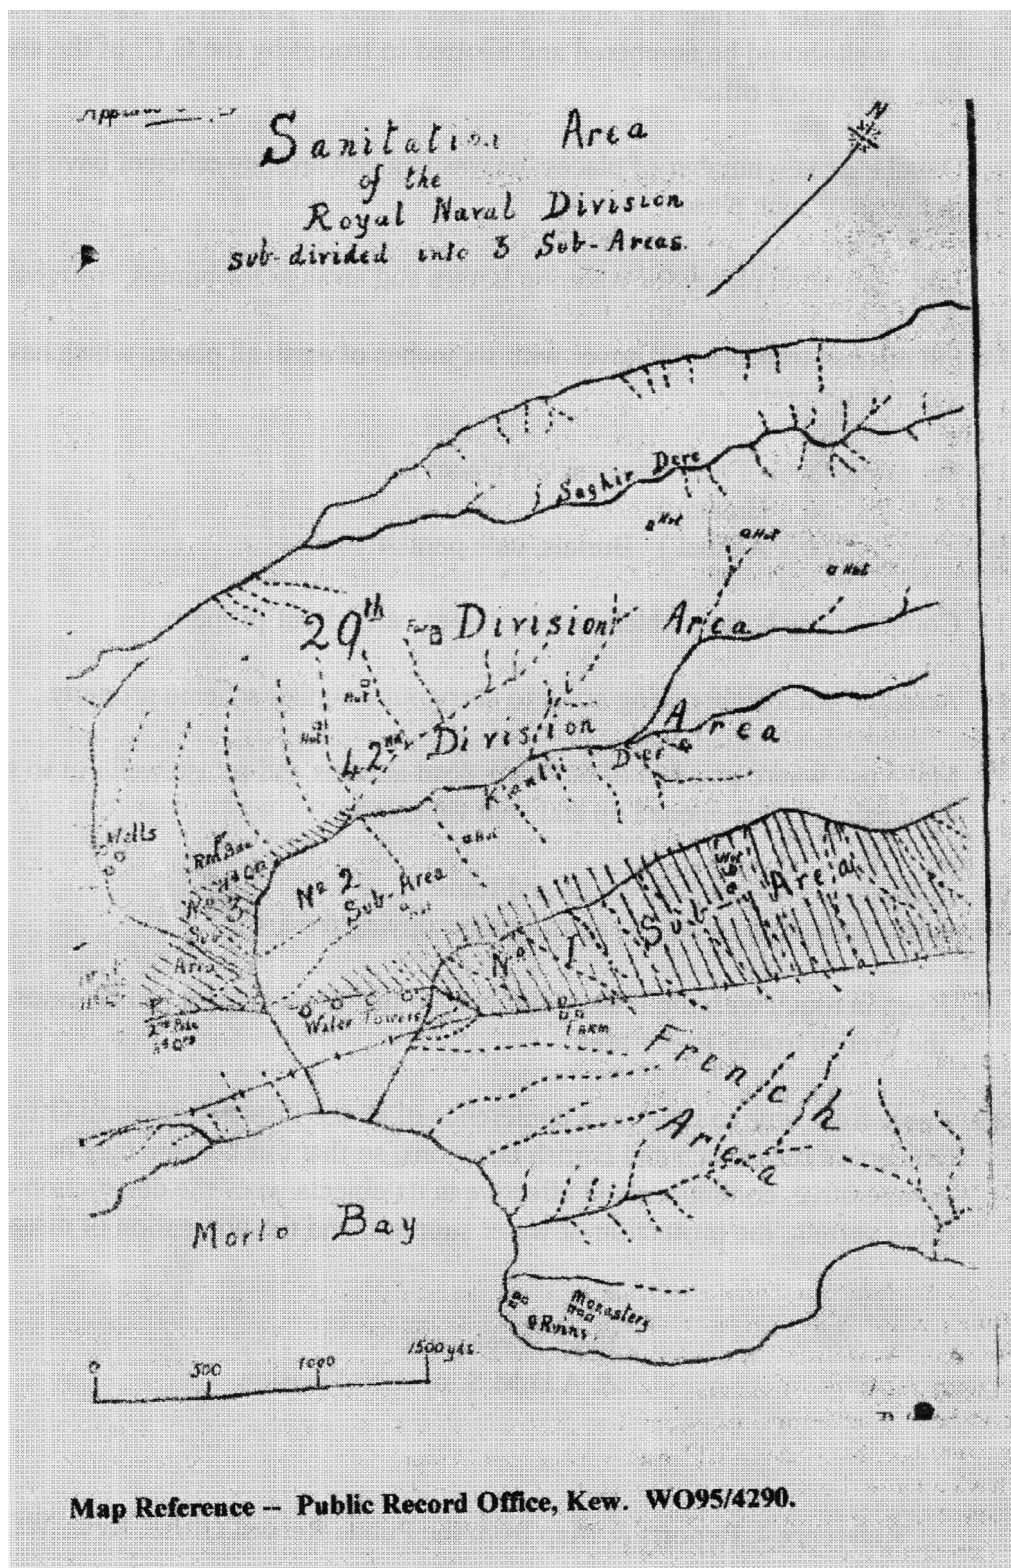 Sanitation Area
of the
Royal Naval Division
sub-divided into 3 Sub-Areas.
N
Saghir Dere
Hut
Hut
Hut
29th Division Area
Hut
Hut
42nd Division Area
Krantli Dere
Wells
RM Bde
Hd Qrs
Hut
No 2
Sub-Area
Hut
No 3
Sub
Area
No 1 Sub-Area
Hut
2nd Bde
Hd Qrs
Water Towers
Farm
French
Area
Morto Bay
Monastery
Ruins.
0 500 1000 1500 yds.
Map Reference -- Public Record Office, Kew. WO95/4290.